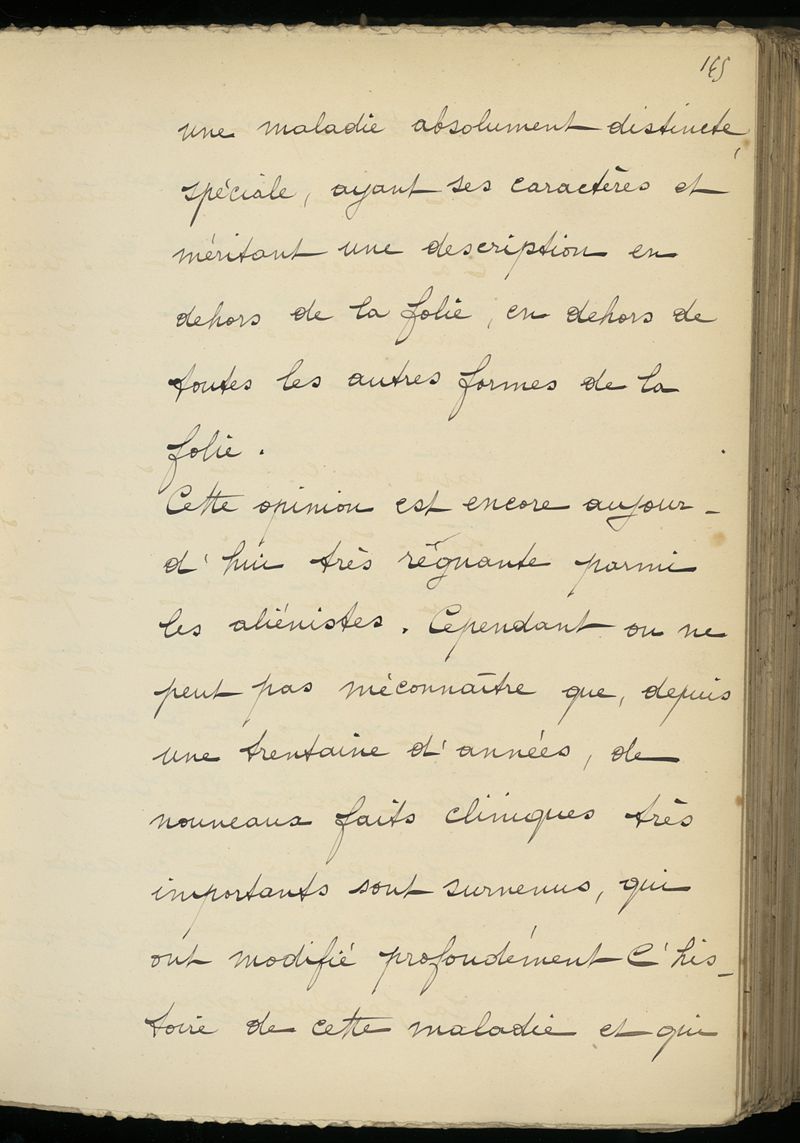 165
une maladie absolument distincte,
spéciale, ayant ses caractères et
méritant une description en
dehors de la folie, en dehors de
toutes les autres formes de la
folie.
Cette opinion est encore aujour-
d'hui très régnante parmi
les aliénistes. Cependant on ne
peut pas méconnaître que, depuis
une trentaine d'années, de
nouveaux faits cliniques très
importants sont survenus, qui
ont modifié profondément l'his-
toire de cette maladie et qui